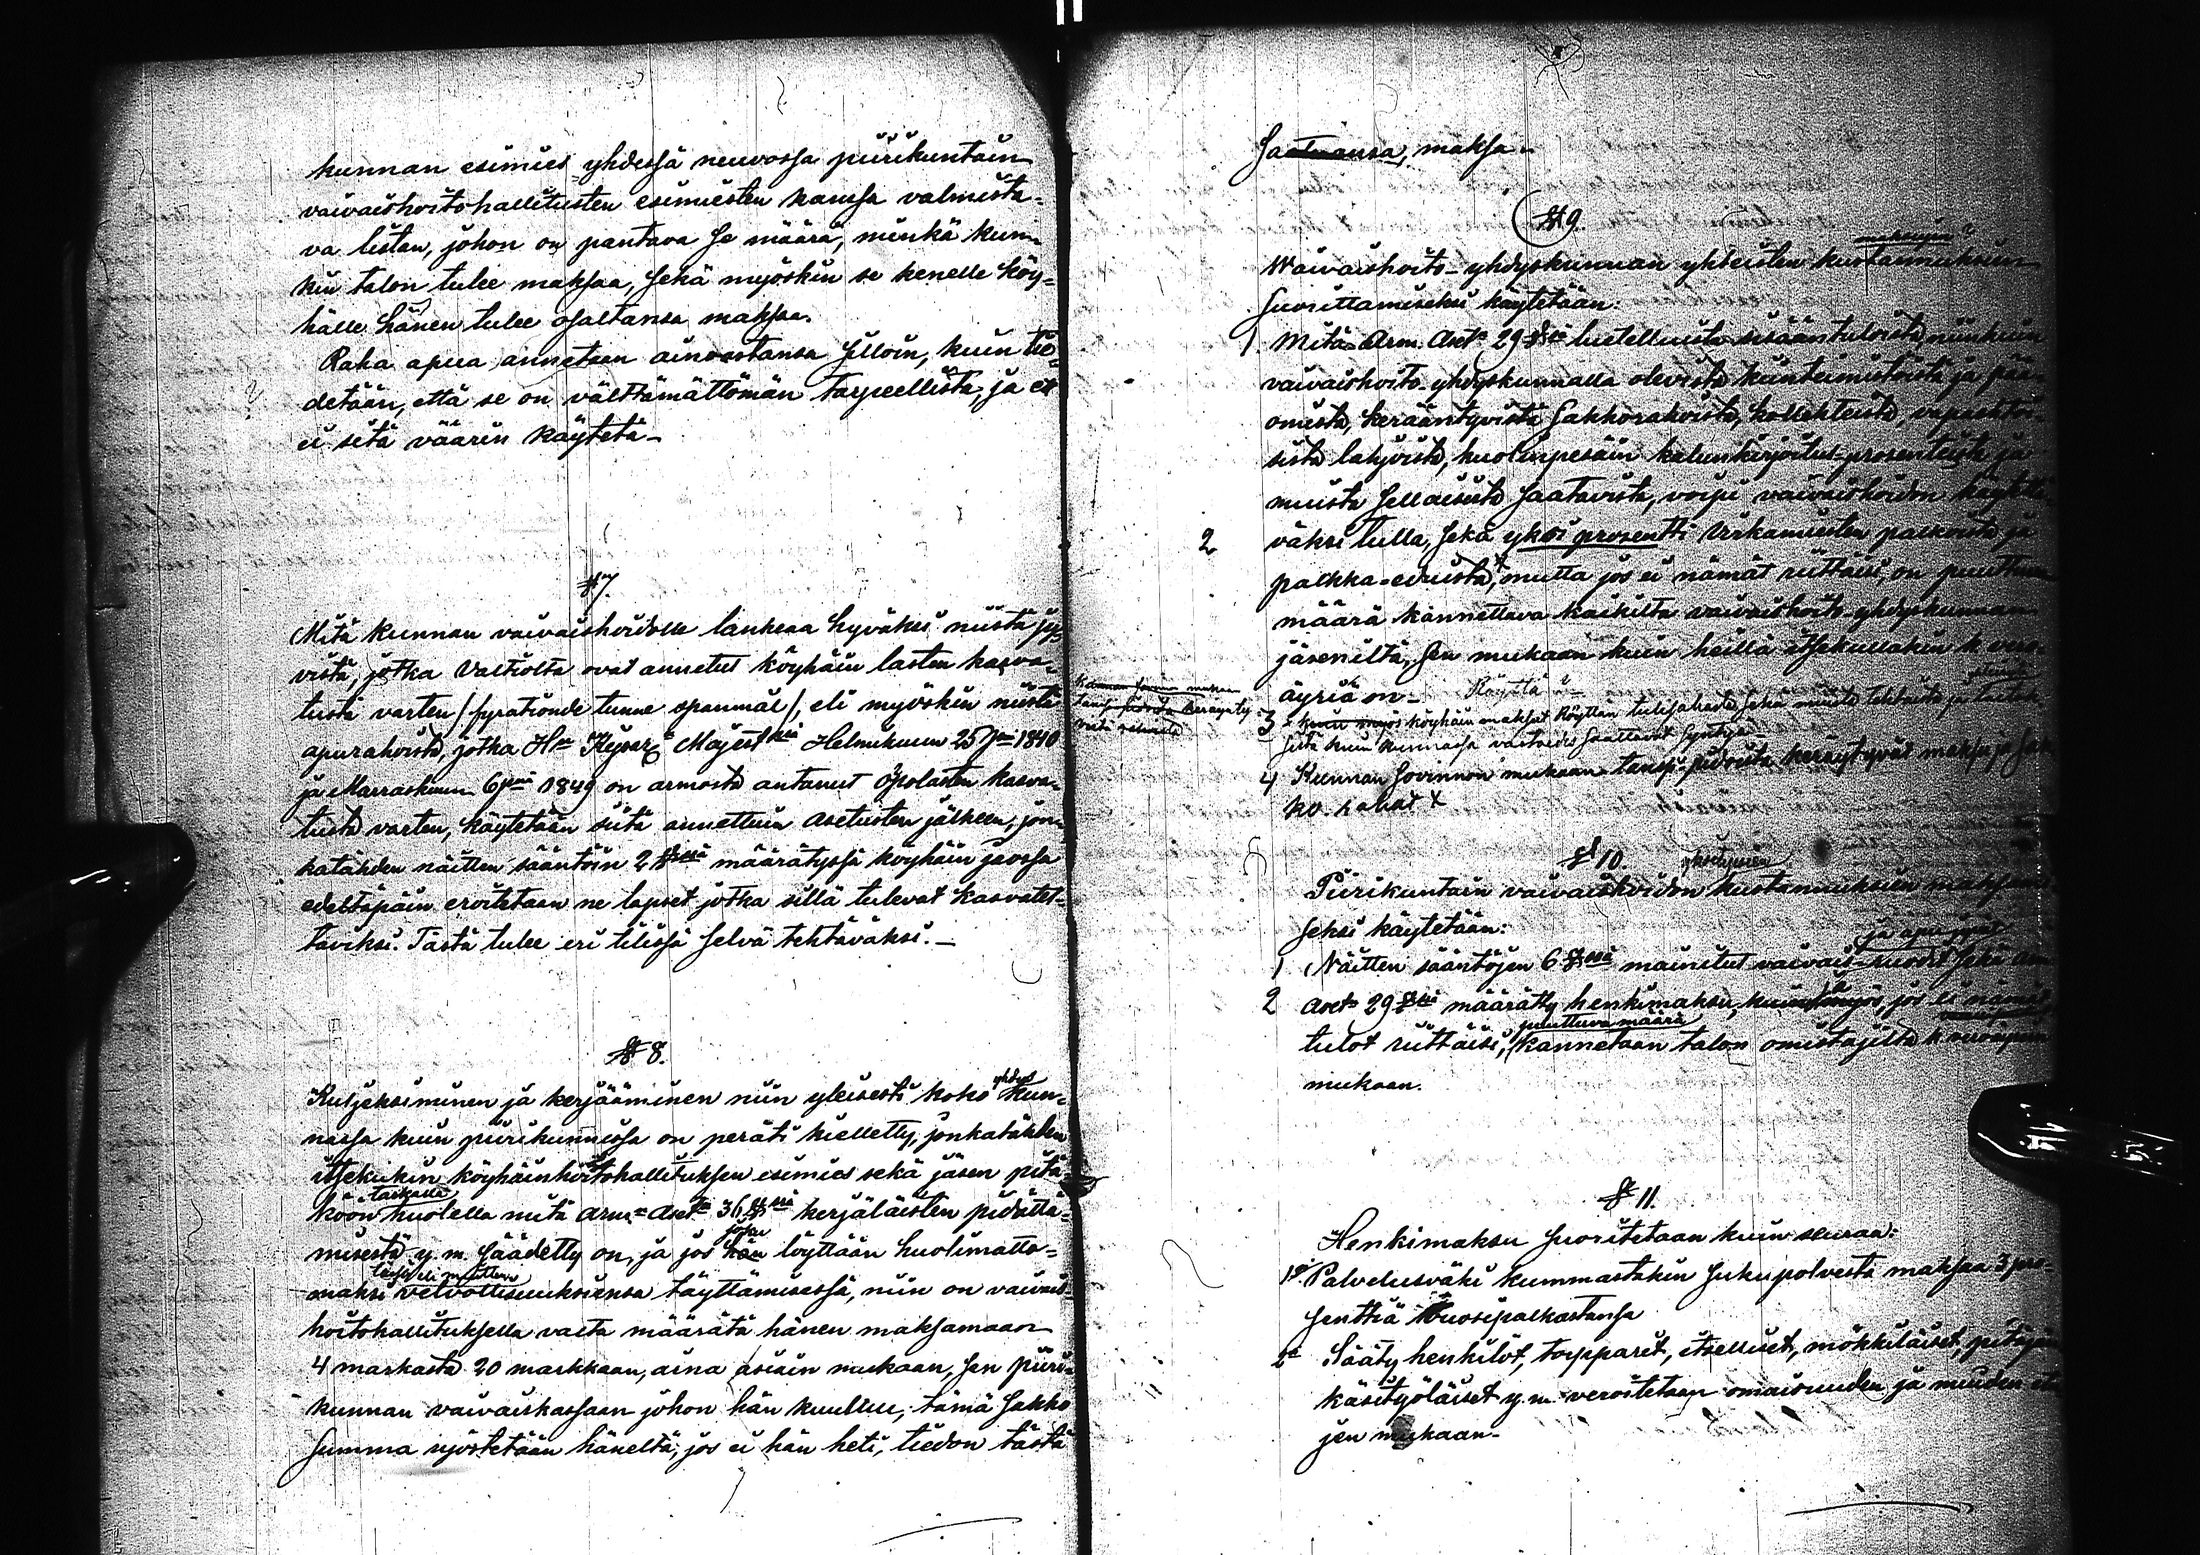 kunnan esimies yhdessä neuvossa piirikuntain
vaivaishoitohallitusten esimiesten kanssa valmista-
va listan, johon on pantava se määrä, minkä kun-
kin talon tulee maksaa, sekä myöskin se kenelle köy-
hälle hänen tulee osaltansa maksaa.
Raha apua annetaan ainoastansa silloin, kuin tie-
detään, että se on välttämättömän tarpeellista, ja et
ei sitä väärin käytetä-
§ 7.
Mitä kunnan vaivaishoidolle lankeaa hyväksi niistä jy-
vistä, jotka Valtiolta ovat annetut köyhäin lasten kasva-
tusta varten /fyrationde tunne spanmål/, eli myöskin niistä
apurahoista, jotka Hra Keisar Majest Helmikuun 25 p 1840
ja Marraskuun 6 p 1849 on armosta antanut öpolasten kasva-
tusta varten, käytetään siitä annettuin asetusten jälkeen, jon-
katähden näitten sääntöin 2 §ssä määrätyssä köyhäin jaossa
edeltäpäin eroitetaan ne lapset jotka sillä tulevat kasvatet-
taviksi. Tästä tulee eri tilissä selvä tehtäväksi.-
§ 8.
yhdys
Kuljeksiminen ja kerjääminen niin yleisesti koko kun-
nassa kuin piirikunnissa on peräti kielletty, jonkatähden
itsekukin köyhäinhoitohallituksen esimies sekä jäsen pitä-
tarkalla
köön huolella mitä arm. aset. 36 §ssä kerjäläisten pidättä-
joku
misestä y. m. säädetty on, ja jos hän löyttään huolimatto-
maksi velvollisuuksiensa täyttämisessä, niin on vaivais-
hoitohallituksella valta määrätä hänen maksamaan
4 markasta 20 markkaan, aina asiain mukaan, sen piiri-
kunnan vaivaiskassaan johon hän kuuluu, tämä sakko
summa ujostetaan häneltä, jos ei hän heti, tiedon tästä
saatuansa, maksa-
§ 9.
Waivaishoito-yhdyskunnan yhteisten kustannuksien
suorittamiseksi käytetään:
1 Mitä Arm. Aset. 29 §ssä luetelluista sisääntuloista niinkuin
vaivaishoito-yhdyskunnalla olevista kiinteimistöistä ja pää-
omista, kerääntyvistä sakkorahoista, kollehteista, vapaehtoi-
sista lahjoista, kuolinpesäin kalunkirjoitus-prosenteista ja
muista sellaisista saatavista, voipi vaivaishoidon käytettä
2 väksi tulla, sekä yksi prosentti Virkamiesten palkoista ja
palkka-eduista, x mutta jos ei nämät riittäisi, on puuttuva
määrä kannettava kaikilta vaivaishoito-yhdyskunnan
jäseniltä, sen mukaan kuin heillä itsekullakin k vero-
äyriä on-
3 kuin myös köyhäin maksut Röyttän tulisahasta sekä muista tehtaista ja
sista kuin kunnassa vastaedes saattavat syntyä-
4 Kunnan sovinnon mukaan tanssi-pidoista keräytyvät maksu ja sak
ko. rahat x
§ 10.
yksityisien
Piirikuntain vaivaishoidon kustannuksien maksami
seksi käytetään:
ja apu jyvät
1 Näitten sääntöjen 6 §ssä mainitut vaivais-ruodit sekä Arm
2 Aset. 29 §ssä määrätty henkimaksu, kuin myös, jos ei nämät
puuttuva määrä
tulot riittäisi, kannetaan talon omistajilta k veroäyrin
mukaan.
§ 11.
Henkimaksu suoritetaan kuin seuraa:
1o Palvelusväki kummastakin sukupolvesta maksaa 3 pro-
senttiä vuosipalkastansa
2o Sääty henkilöt, torpparit, itselliset, mökkiläiset, pitäjän
käsityöläiset y. m. verotetaan omaisuuden ja muuden etu
jen mukaan-